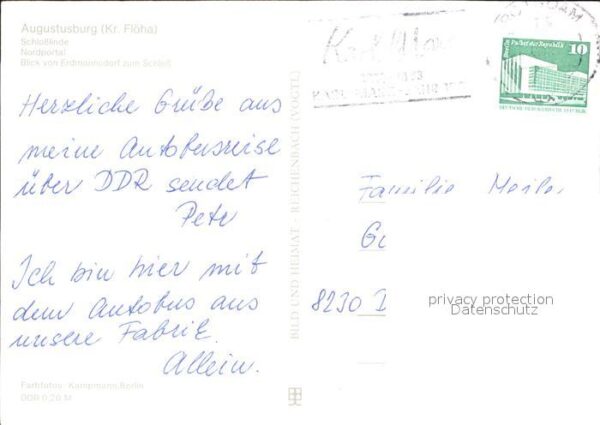 Augustusburg (Kr. Flöha)
Schloßlinde
Nordportal
Blick von Erdmannsdorf zum Schloß
Herzliche Grüße aus
meine Autobusreise
über DDR sendet
Petr
Ich bin hier mit
dem Autobus aus
unsere Fabrik.
Allein.
Farbfotos: Kampmann, Berlin
DDR 0,20 M
BILD UND HEIMAT · REICHENBACH (VOGTL)
Karl Marx
Berlin Palast der Republik
10
DEUTSCHE DEMOKRATISCHE REPUBLIK
Familie
8230
privacy protection
Datenschutz